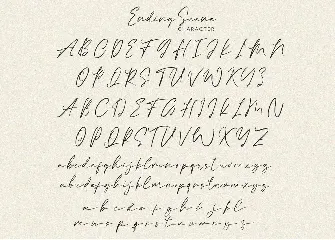 Ending Suena
CHARACTER
A B C D E F G H I J K L M N
O P Q R S T U V W X Y Z
A B C D E F G H I J K L M N
O P Q R S T U V W X Y Z
a b c d e f g h i j k l m n o p q r s t u v w x y z
a b c d e f g h i j k l m n o p q r s t u v w x y z
a b c d e f g h i j k l
m n o p q r s t u v w x y z